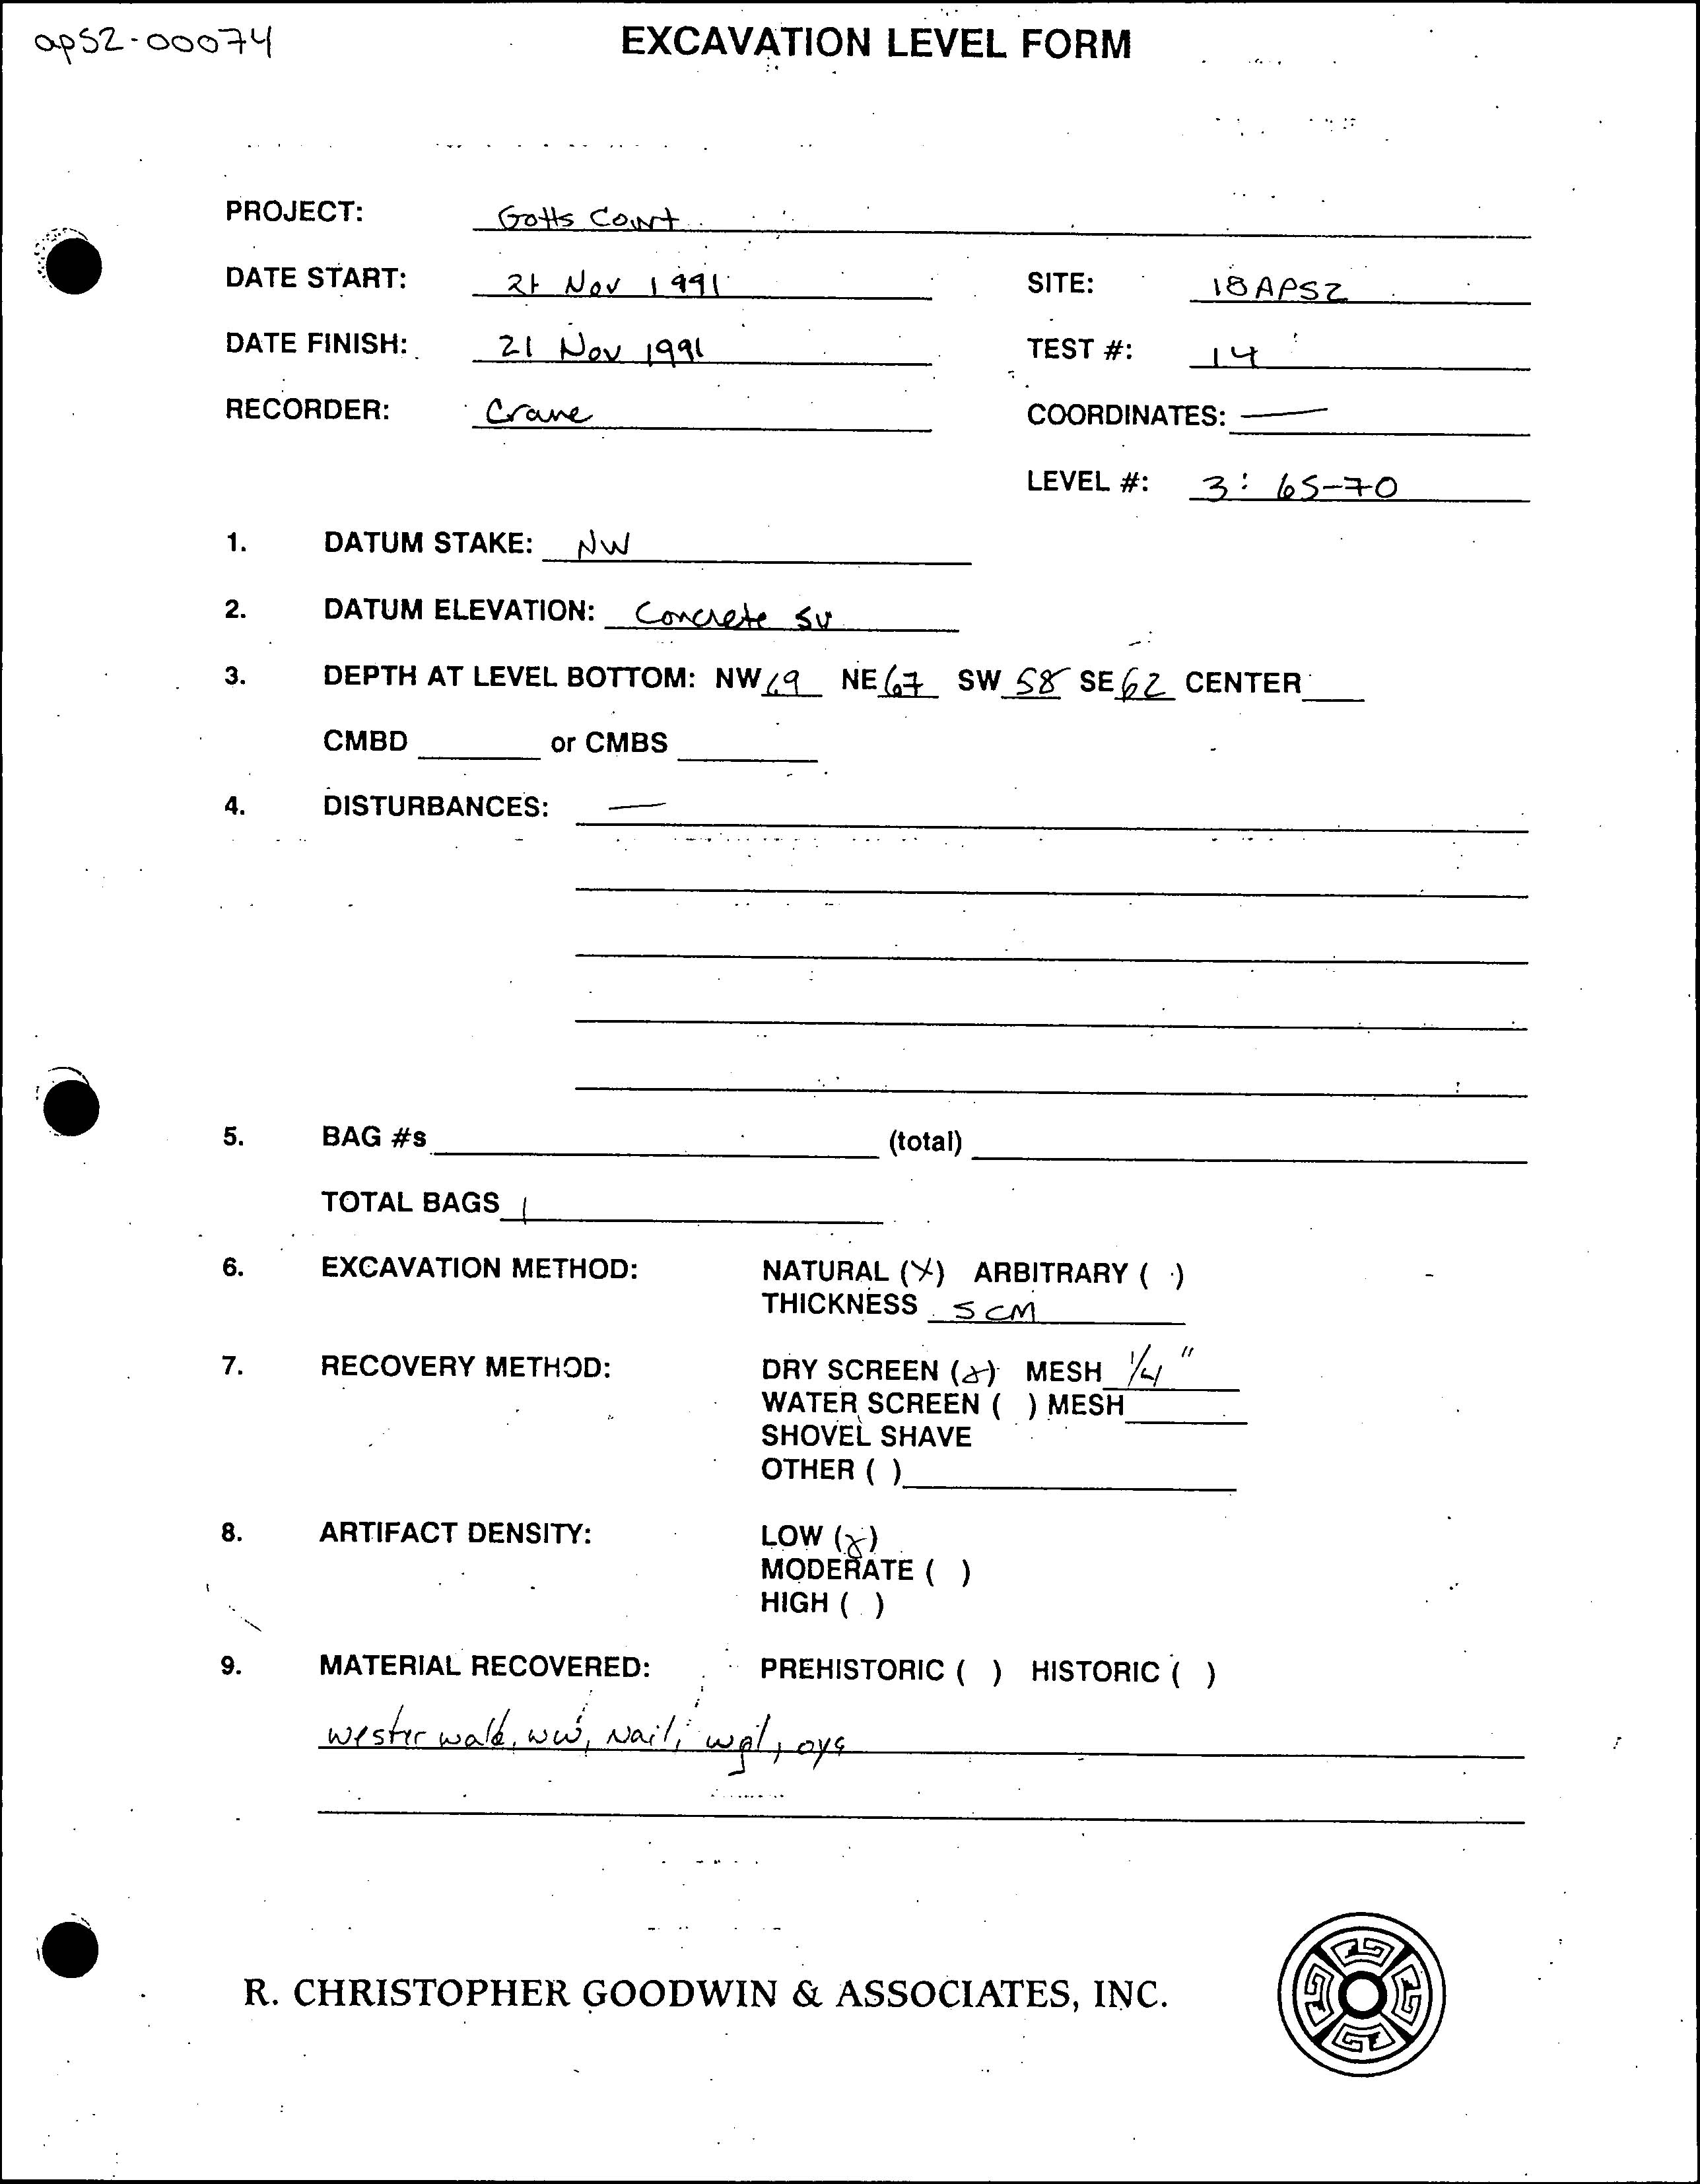 ap52-00074
EXCAVATION LEVEL FORM
PROJECT: Gotts Court
DATE START: 21 Nov 1991 SITE: 18AP52
DATE FINISH: 21 Nov 1991 TEST #: 14
RECORDER: Crane COORDINATES: —
LEVEL #: 3: 65-70
1. DATUM STAKE: NW
2. DATUM ELEVATION: Concrete
3. DEPTH AT LEVEL BOTTOM: NW 69 NE 67 SW 58 SE 62 CENTER
CMBD or CMBS
4. DISTURBANCES: —
5. BAG #s (total)
TOTAL BAGS 1
6. EXCAVATION METHOD: NATURAL (X) ARBITRARY ( )
THICKNESS 5 CM
7. RECOVERY METHOD: DRY SCREEN (X) MESH 1/4"
WATER SCREEN ( ) MESH
SHOVEL SHAVE
OTHER ( )
8. ARTIFACT DENSITY: LOW (X)
MODERATE ( )
HIGH ( )
9. MATERIAL RECOVERED: PREHISTORIC ( ) HISTORIC ( )
westerwald, ww, nail, wgl, oys
R. CHRISTOPHER GOODWIN & ASSOCIATES, INC.